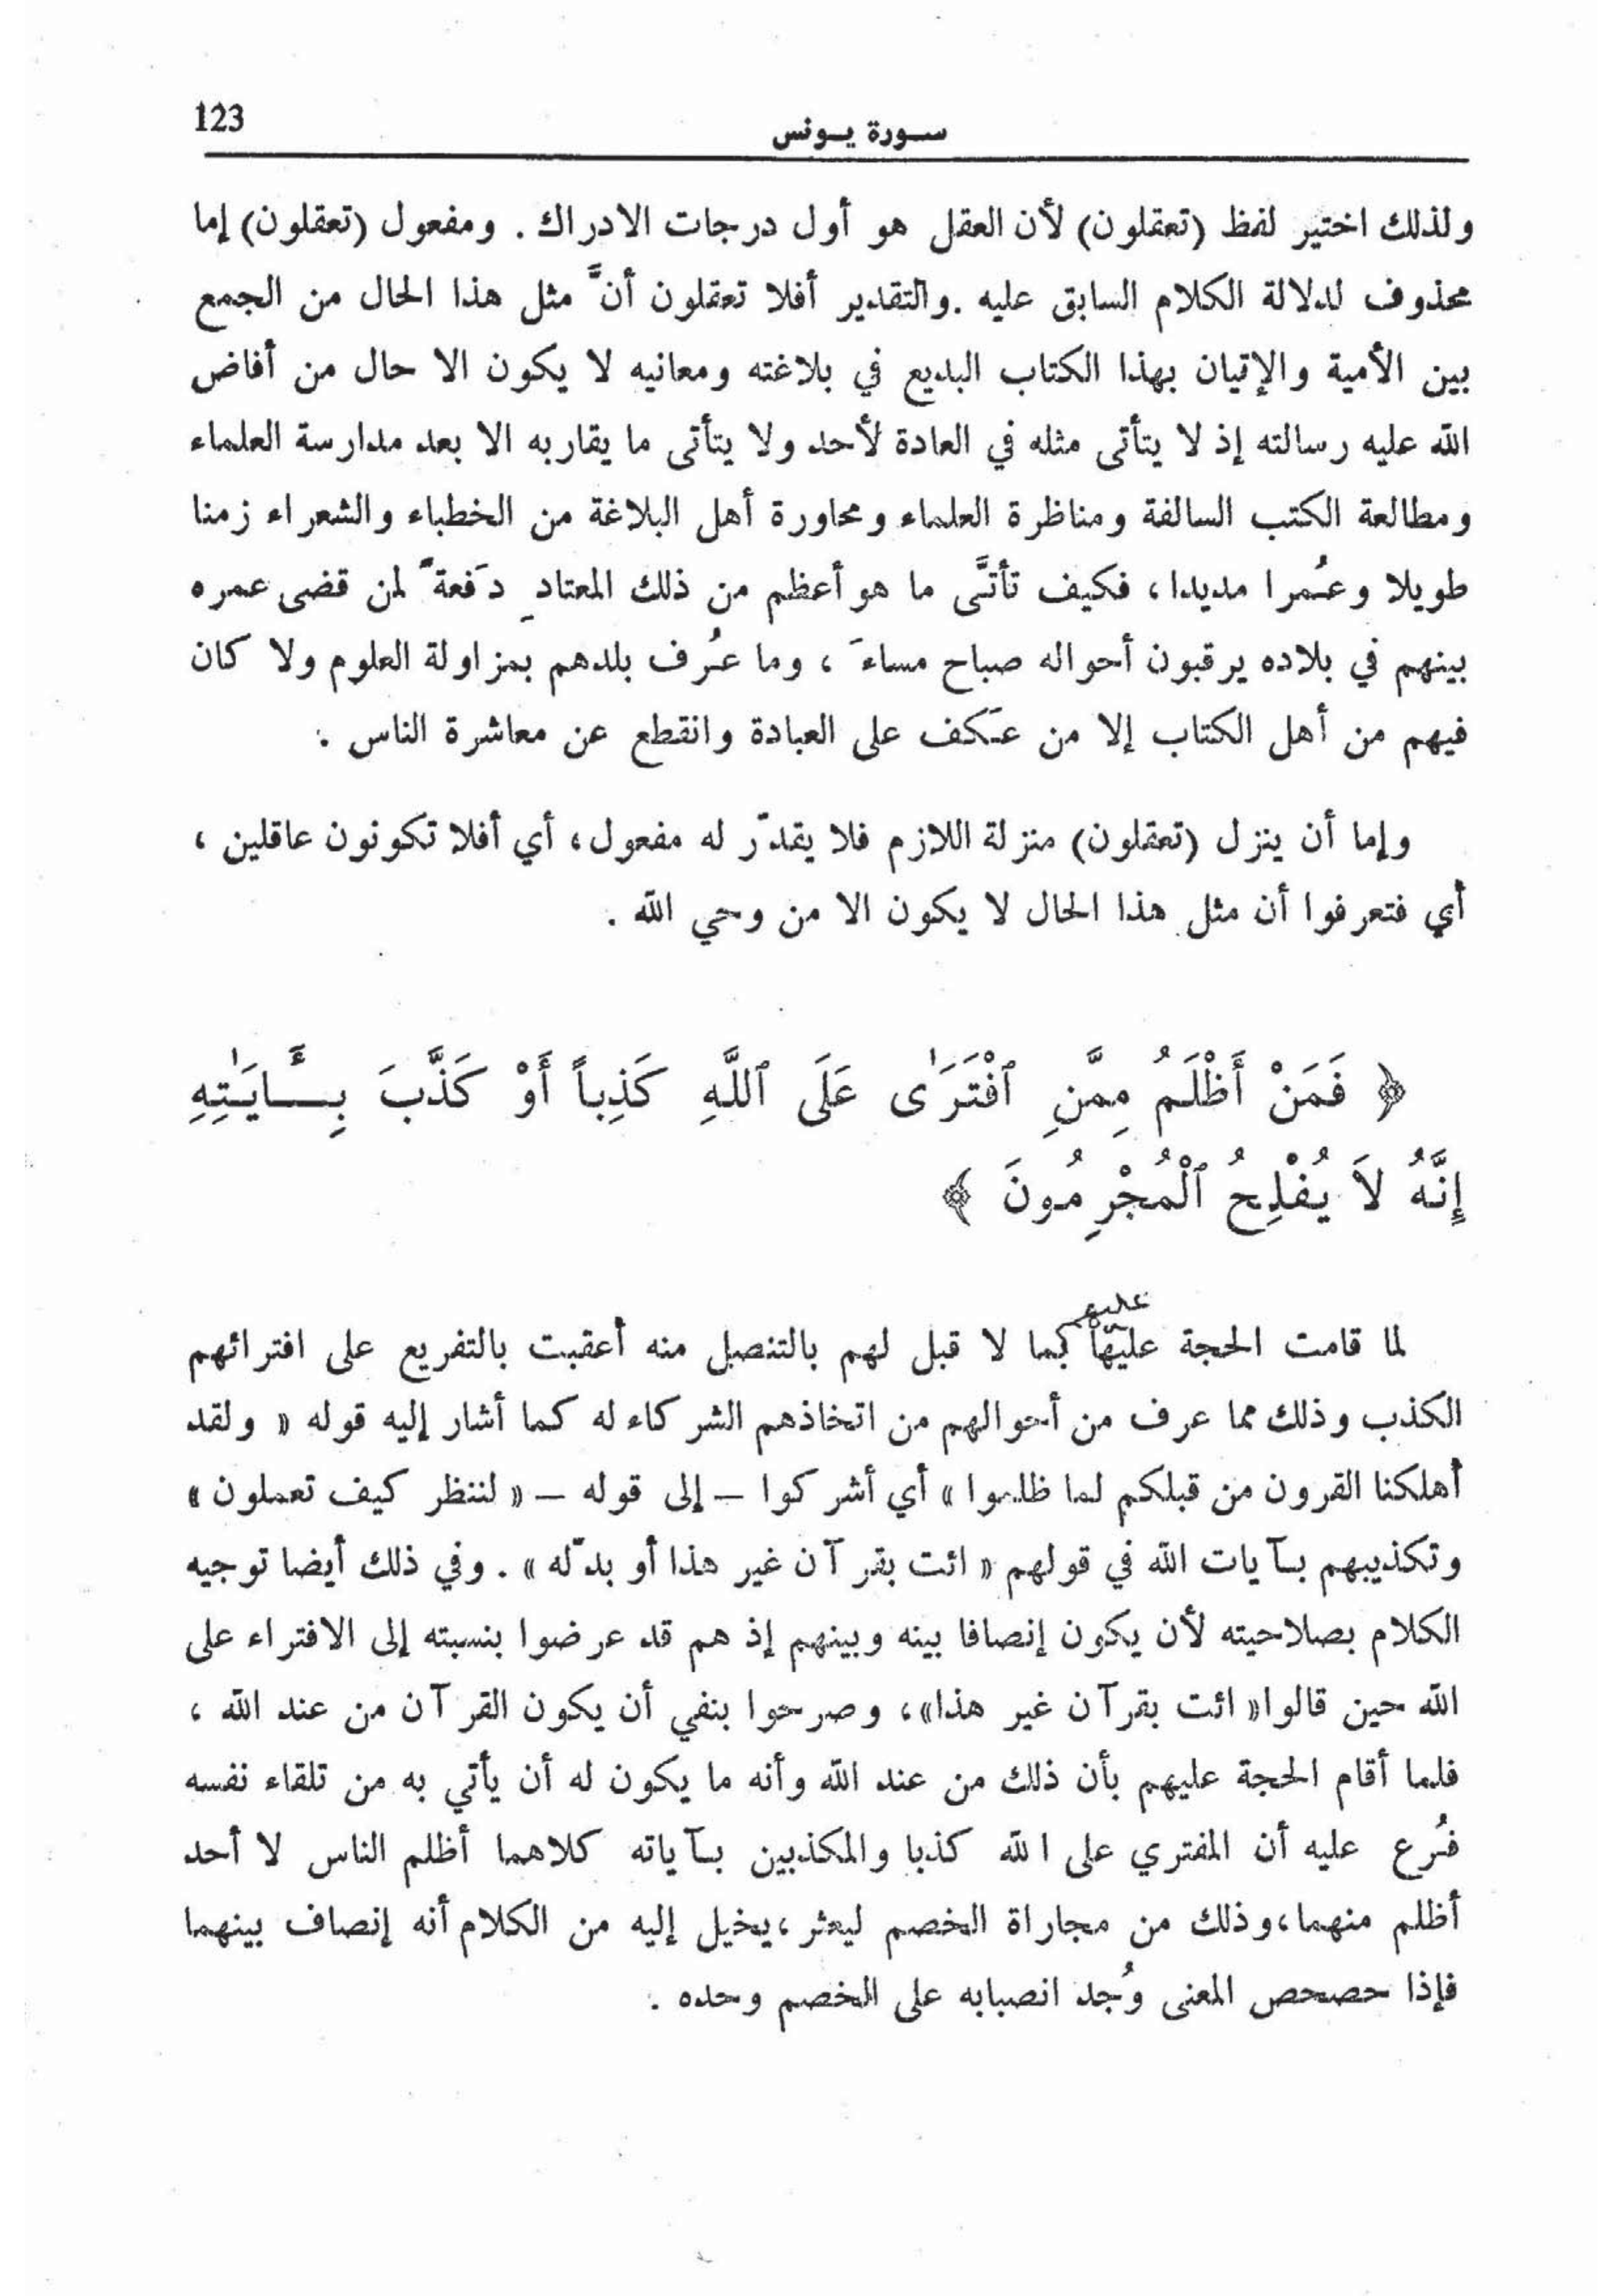 123
سورة يونس
ولذلك اختير لفظ (تعقلون) لأن العقل هو أول درجات الادراك . ومفعول (تعقلون) إما
محذوف لدلالة الكلام السابق عليه . والتقدير أفلا تعقلون أنَّ مثل هذا الحال من الجمع
بين الأمية والإتيان بهذا الكتاب البديع في بلاغته ومعانيه لا يكون الا حال من أفاض
الله عليه رسالته إذ لا يتأتى مثله في العادة لأحد ولا يتأتى ما يقاربه الا بعد مدارسة العلماء
ومطالعة الكتب السالفة ومناظرة العلماء ومحاورة أهل البلاغة من الخطباء والشعراء زمنا
طويلا وعُمرا مديدا ، فكيف تأتَّى ما هو أعظم من ذلك المعتادِ دَفعةً لمن قضى عمره
بينهم في بلاده يرقبون أحواله صباح مساءَ ، وما عُرف بلدهم بمزاولة العلوم ولا كان
فيهم من أهل الكتاب إلا من عَكف على العبادة وانقطع عن معاشرة الناس .
وإما أن ينزل (تعقلون) منزلة اللازم فلا يقدّر له مفعول ، أي أفلا تكونون عاقلين ،
أي فتعرفوا أن مثل هذا الحال لا يكون الا من وحي الله .
﴿ فَمَنْ أَظْلَمُ مِمَّنِ ٱفْتَرَىٰ عَلَى ٱللَّهِ كَذِباً أَوْ كَذَّبَ بِـَٔايَـٰتِهِ
إِنَّهُ لاَ يُفْلِحُ ٱلْمُجْرِمُونَ ﴾
عليهم
لما قامت الحجة عليها بما لا قبل لهم بالتنصل منه أعقبت بالتفريع على افترائهم
الكذب وذلك مما عرف من أحوالهم من اتخاذهم الشركاء له كما أشار إليه قوله « ولقد
أهلكنا القرون من قبلكم لما ظلموا » أي أشركوا – إلى قوله – « لننظر كيف تعملون »
وتكذيبهم بآيات الله في قولهم « ائت بقرآن غير هذا أو بدّله » . وفي ذلك أيضا توجيه
الكلام بصلاحيته لأن يكون إنصافا بينه وبينهم إذ هم قد عرضوا بنسبته إلى الافتراء على
الله حين قالوا « ائت بقرآن غير هذا » ، وصرحوا بنفي أن يكون القرآن من عند الله ،
فلما أقام الحجة عليهم بأن ذلك من عند الله وأنه ما يكون له أن يأتي به من تلقاء نفسه
فُرع عليه أن المفتري على الله كذبا والمكذبين بآياته كلاهما أظلم الناس لا أحد
أظلم منهما ، وذلك من مجاراة الخصم ليعثر ، يخيل إليه من الكلام أنه إنصاف بينهما
فإذا حصحص المعنى وُجد انصبابه على الخصم وحده .